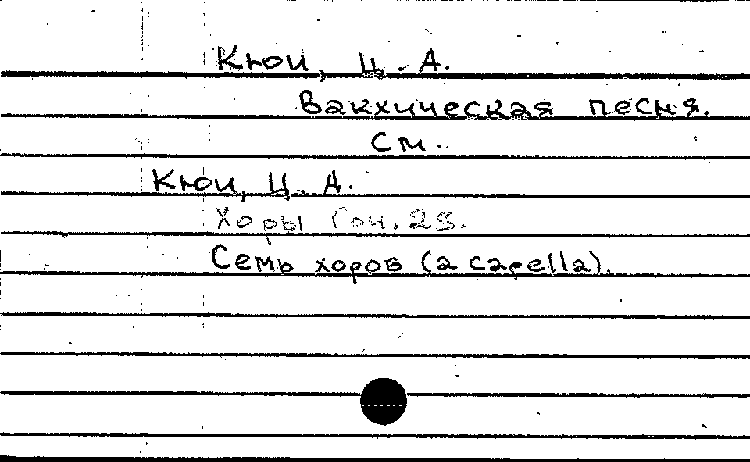 Кюи, Ц. А.
Вакхическая песня.
См.
Кюи, Ц. А.
Хоры Соч. 28.
Семь хоров (a capella).